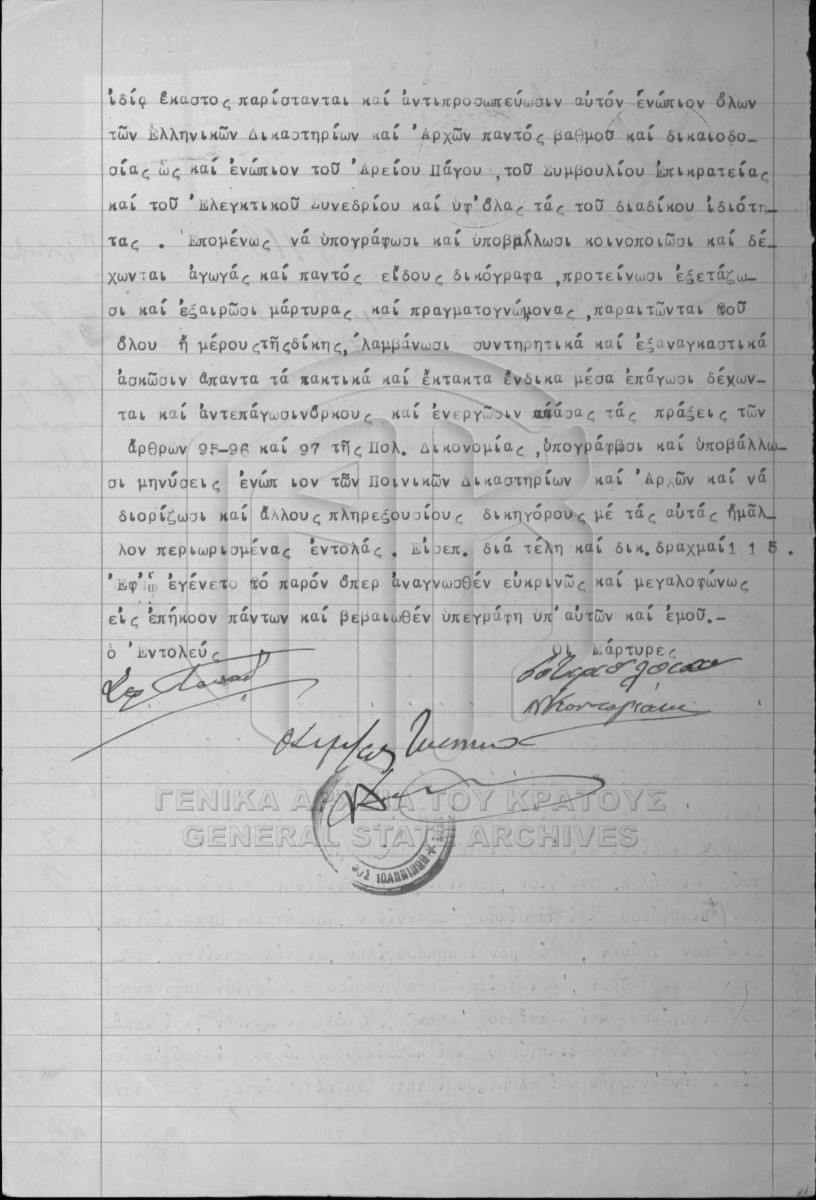 ἰδίᾳ ἕκαστος παρίστανται καί ἀντιπροσωπεύωσιν αὐτόν ἐνώπιον ὅλων
τῶν Ἑλληνικῶν Δικαστηρίων καί Ἀρχῶν παντός βαθμοῦ καί δικαιοδο-
σίας ὡς καί ἐνώπιον τοῦ Ἀρείου Πάγου ,τοῦ Συμβουλίου Ἐπικρατείας
καί τοῦ Ἐλεγκτικοῦ Συνεδρίου καί ὑφ'ὅλας τάς τοῦ διαδίκου ἰδιότη-
τας . Ἑπομένως νά ὑπογράφωσι καί ὑποβάλλωσι κοινοποιῶσι καί δέ-
χωνται ἀγωγάς καί παντός εἴδους δικόγραφα ,προτείνωσι ἐξετάζω-
σι καί ἐξαιρῶσι μάρτυρας καί πραγματογνώμονας ,παραιτῶνται τοῦ
ὅλου ἤ μέρους τῆς δίκης, λαμβάνωσι συντηρητικά καί ἐξαναγκαστικά
ἀσκῶσιν ἅπαντα τά τακτικά καί ἔκτακτα ἔνδικα μέσα ἐπάγωσι δέχων-
ται καί ἀντεπάγωσιν ὅρκους καί ἐνεργῶσιν πάσας τάς πράξεις τῶν
ἄρθρων 95-96 καί 97 τῆς Πολ. Δικονομίας ,ὑπογράφωσι καί ὑποβάλλω-
σι μηνύσεις ἐνώπ ιον τῶν Ποινικῶν Δικαστηρίων καί Ἀρχῶν καί νά
διορίζωσι καί ἄλλους πληρεξουσίους δικηγόρους μέ τάς αὐτάς ἤμᾶλ-
λον περιωρισμένας ἐντολάς . Εἰσεπ. διά τέλη καί δικ. δραχμαί 1 1 5 .
Ἐφ'ᾧ ἐγένετο τό παρόν ὅπερ ἀναγνωσθέν εὐκρινῶς καί μεγαλοφώνως
εἰς ἐπήκοον πάντων καί βεβαιωθέν ὑπεγράφη ὑπ'αὐτῶν καί ἐμοῦ.-
ὁ Ἐντολεύς Οἱ Μάρτυρες
ΓΕΝΙΚΑ ΑΡΧΕΙΑ ΤΟΥ ΚΡΑΤΟΥΣ
GENERAL STATE ARCHIVES